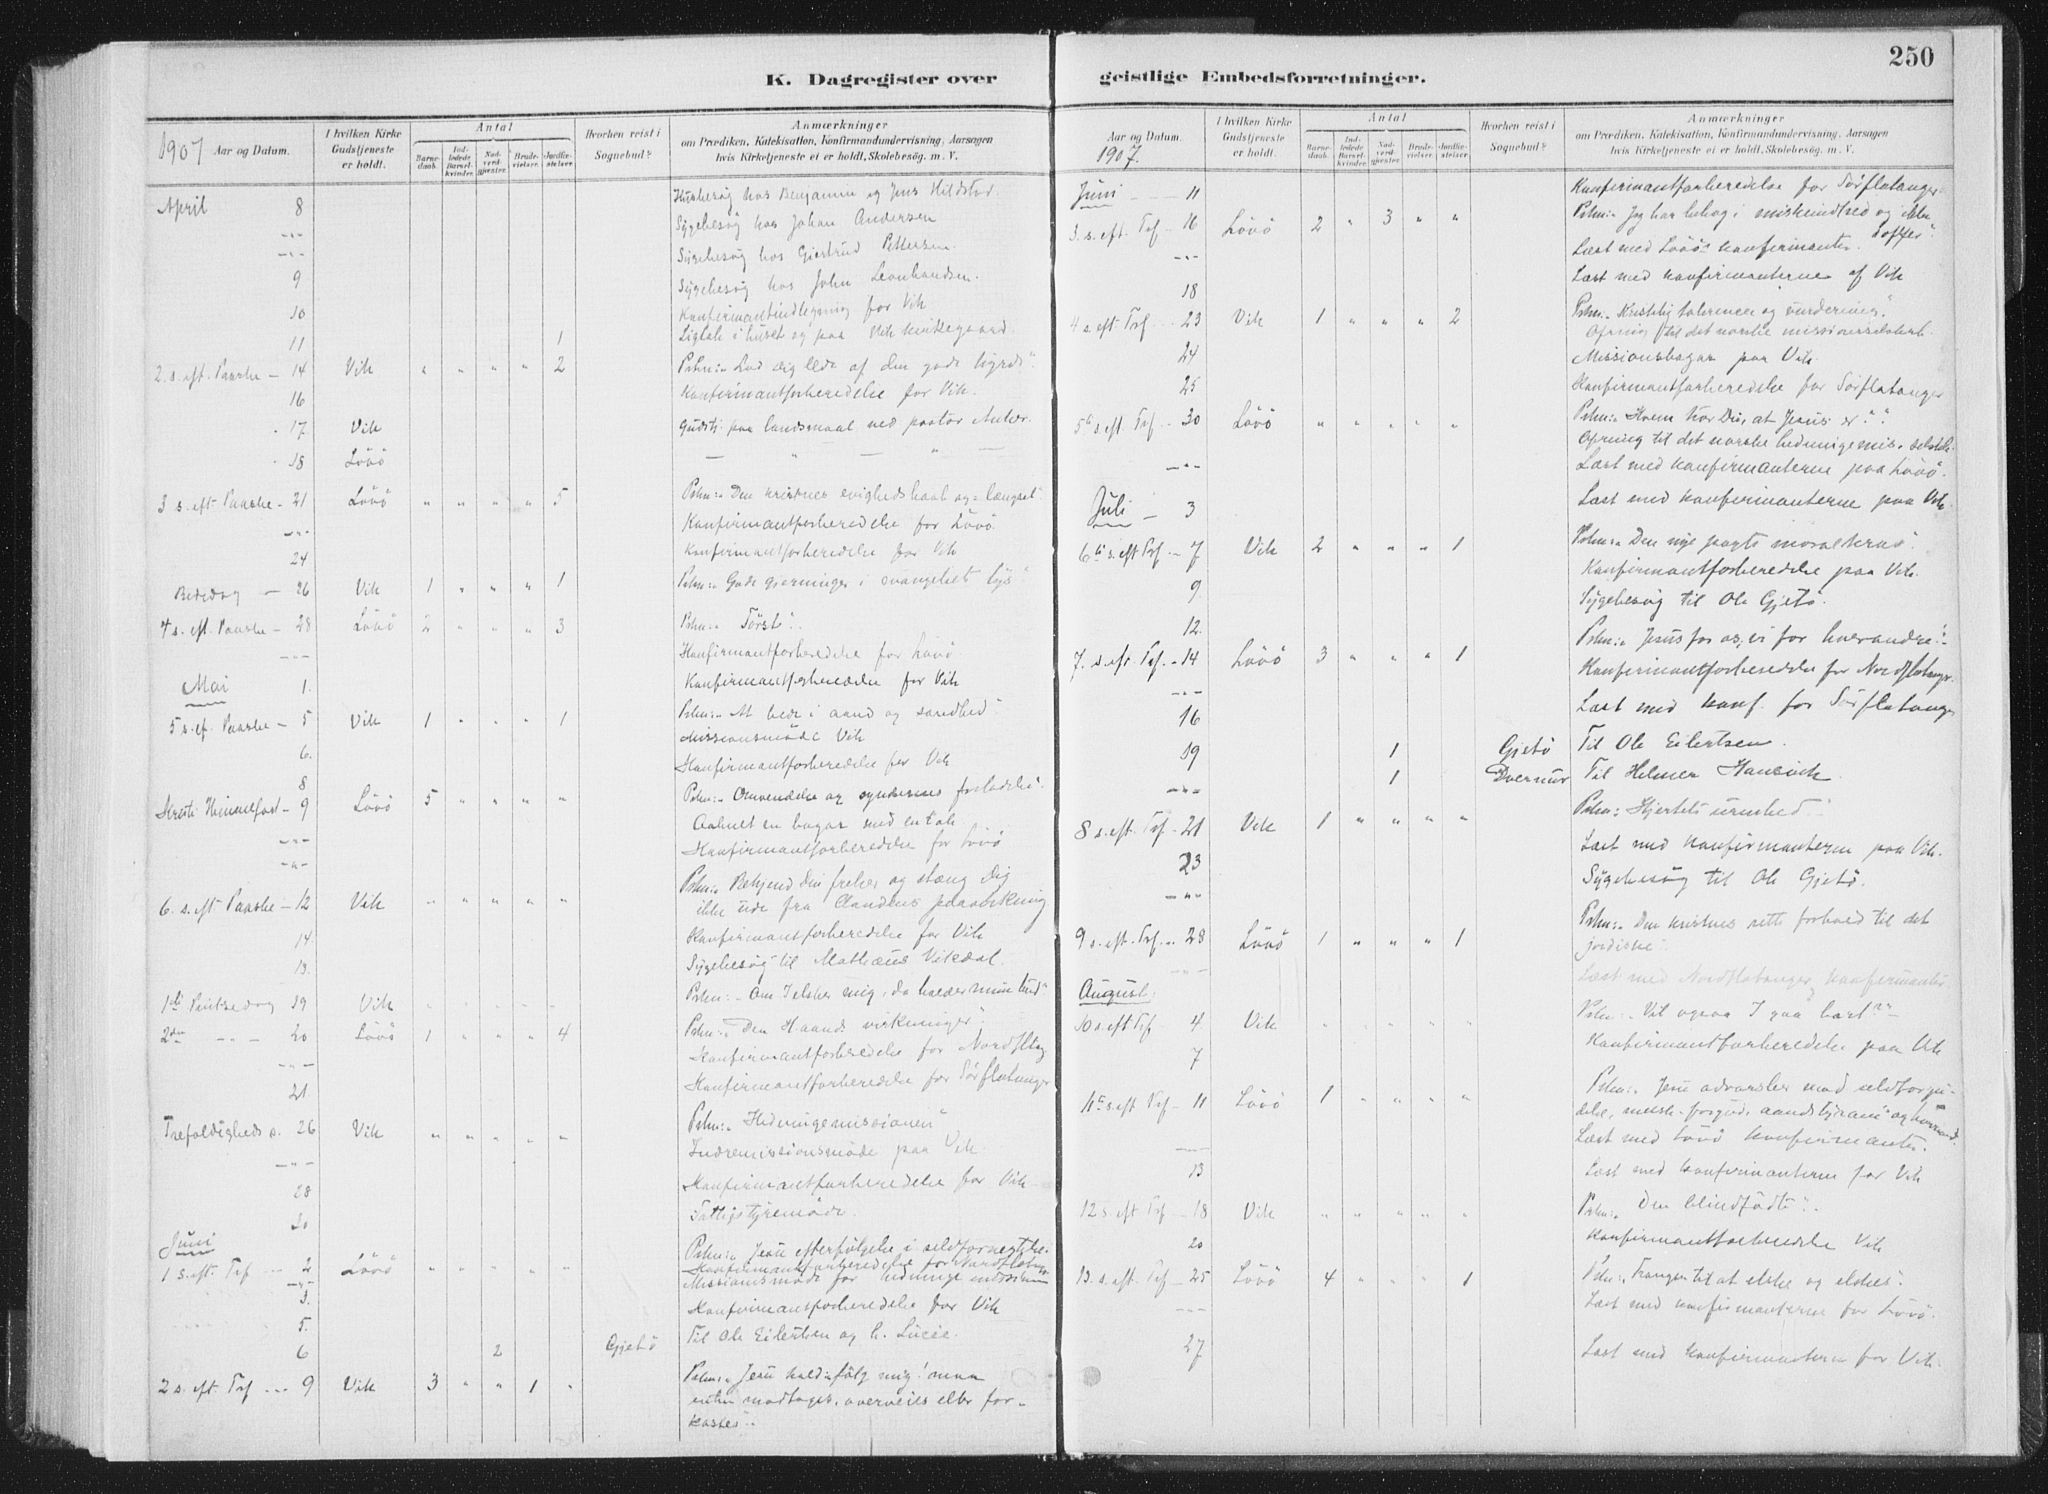 K. Dagregister over
1907 Aar og Datum.
I hvilken Kirke Gudstjeneste er holdt.
Antal
Barnedaab.
Indledede Barselkvinder.
Nadverdgjester.
Brudevielser.
Jordfæstelser.
Hvorhen reist i Sognebud?
Anmærkninger
om Prædiken, Katekisation, Konfirmandundervisning, Aarsagen
hvis Kirketjeneste ei er holdt, Skolebesøg. m. V.
April 8 Husbesøg hos Benjamin og Jens Hildstad
-"- Sygebesøg hos Johan Andersen
-"- Sygebesøg hos Gjertrud Pettersen.
9 Sygebesøg hos John Leonhardsen.
10 Konfirmantindlegning for Vik
11 1 Ligtale i huset og paa Vik kirkegaard
2. s. eft. Paaske - 14 Vik " " " " 2 Prkn: "Lad dig lede af den gode hyrde".
16 Konfirmantforberedelse for Vik.
17 Vik Gudstj. paa landsmaal ved pastor Anker.
18 Lövö — " — " —
3 s. eft. Paaske - 21 Lövö " " " " 5 Prkn: "Den kristnes evighedshaab og -længsel".
-"- Konfirmantforberedelse for Lövö
24 Konfirmantforberedelse for Vik
Bededag - 26 Vik 1 " " " 1 Prkn: "Gode gjerninger i evangeliets lys"
4 s. eft. Paaske - 28 Lövö 2 " " " 3 Prkn: "Törst".
-"- Konfirmantforberedelse for Lövö
Mai 1. Konfirmantforberedelse for Vik
5 s. ef. Paaske - 5 Vik 1 " " " 1 Prkn: "At bede i aand og sandhed"
Missionsmöde Vik
6. Konfirmantforberedelse for Vik
8
Kristi Himmelfart - 9 Lövö 5 " " " " Prkn: "Omvendelse og syndernes forladelse".
-"- Aabnet en bazar med en tale
-"- Konfirmantforberedelse for Lövö
6. s. eft Paaske - 12 Vik " " " " " Prkn: "Bekjend din frelser og stæng dig
ikke ude fra Aandens paavirkning
14. Konfirmantforberedelse for Vik
13. Sygebesøg til Mathæus Vikdal.
1ste Pintsedag 19 Vik Prkn: "Om I elsker mig, da holder mine bud"
2den -"- 20 Lövö 1 " " " 4 Prkn: "Den H aands virkninger".
-"- Konfirmantforberedelse for Nordfltng
21. Konfirmantforberedelse for Sörflatanger
Trefoldigheds s. 26 Vik " " " " " Prkn: "Hedningemissionen"
-"- Indremissionsmöde paa Vik
28 Konfirmantforberedelse for Vik
30 Fattigstyremöde.
Juni
1 s. eft. Tref --- 2 Lövö " " " " " Prkn: "Jesu efterfölgelse i selvfornegtelse.
Konfirmantforberedelse for Nordflatanger
3. Missionsmöde for hedninge
5. Konfirmantforberedelse for Vik
6 2 Gjetö Til Ole Eilertsen og h. Lucie.
2 s. eft. Tref --- 9 Vik 3 " " 1 " Prkn: "Jesu kald: fölg mig! maa
enten modtages, overveies eller for-
kastes".
geistlige Embedsforretninger.
250
Aar og Datum. 1907.
I hvilken Kirke Gudstjeneste er holdt.
Antal
Barnedaab.
Indledede Barselkvinder.
Nadverdgjester.
Brudevielser.
Jordfæstelser.
Hvorhen reist i Sognebud?
Anmærkninger
om Prædiken, Katekisation, Konfirmandundervisning, Aarsagen
hvis Kirketjeneste ei er holdt, Skolebesøg. m. V.
Juni - - - 11 Konfirmantforberedelse for Sörflatanger
3. s. eft. Tref - 16 Lövö 2 " 3 " " Prkn: "Jeg har behag i miskundhed og ikke
offer".
-"- Læst med Lövös konfirmanter.
18 Læst med konfirmanterne af Vik
4 s. eft Tref - 23 Vik 1 " " " 2 Prkn: "Kristelig tolerence og vurdering".
Ofring til det norske missionsselskab.
24 Missionsbazar paa Vik
25 Konfirmantforberedelse for Sörflatanger
5te s. eft. Tref - 30 Lövö " " " " " Prkn: "Hvem tror Du, at Jesus er?"
Ofring til det norske hedningemis. selskab.
-"- Læst med konfirmanterne paa Lövö.
Juli - 3 Læst med konfirmanterne paa Vik.
6te s. eft Tref - 7 Vik 2 " " " 1 Prkn: "Den nye pagts moralkrav".
9 Konfirmantforberedelse paa Vik.
12. Sygebesøg til Ole Gjetö.
7. s. eft. Tref. - 14 Lövö 3 " " " 1 Prkn: "Jesus for os, vi for hverandre."
-"- Konfirmantforberedelse for Nordflatanger.
16 Læst med konf. for Sörflatanger
19 1 Gjetö Til Ole Eilertsen.
-"- 1 Til Helmer
8 s. eft. Tref - 21 Vik 1 " " " " Prkn: "Hjertets urenhed".
23 Læst med konfirmanterne paa Vik.
-"- Sygebesøg til Ole Gjetö.
9 s. eft. Tref. - 28 Lövö 1 " " " 1 Prkn: "Den kristnes rette forhold til det
jordiske".
-"- Læst med Nordflatanger konfirmanter
August.
10 s. eft Tref - 4 Vik " " " " " Prkn: "Vil ogsaa I gaa bort?"
7 Konfirmantforberedelse paa Vik
11te s. eft Tref - 11 Lövö 1 " " " " Prkn: "Jesu advarsler mod selvforgu-
delse, menneskeforgud. aandstyrani og
Læst med Lövö konfirmanter.
13 Læst med konfirmanterne for Vik
12 s. eft Tref - 18 Vik " " " " " Prkn: "Den blindfödte".
20 Konfirmantforberedelse Vik
13. s. eft. Tref - 25 Lövö 4 " " " 1 Prkn: "Trangen til at elske og elskes".
-"- Læst med konfirmanterne for Lövö.
27 Læst med konfirmanterne for Vik.